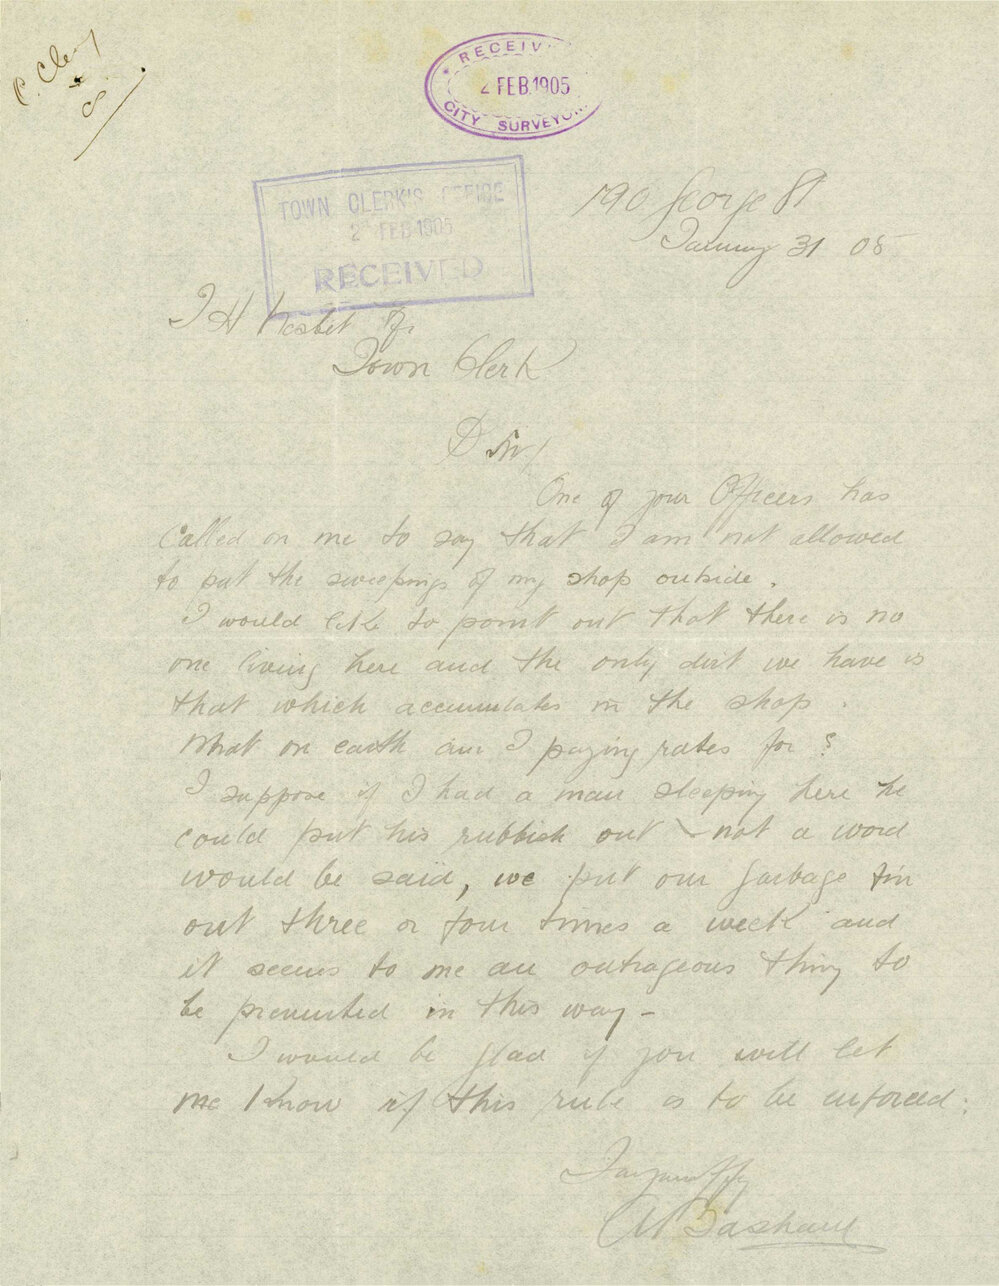 C. Clerk
RECEIV
2 FEB. 1905
CITY SURVEYOR
TOWN CLERK'S OFFICE
2 FEB 1905
RECEIVED
190 George St
January 31 05
T H Nesbit Esq
Town Clerk
D Sir/
One of your Officers has
called on me to say that I am not allowed
to put the sweepings of my shop outside.
I would like to point out that there is no
one living here and the only dirt we have is
that which accumulates in the shop.
What on earth am I paying rates for?
I suppose if I had a man sleeping here he
could put his rubbish out - not a word
would be said, we put our garbage tin
out three or four times a week and
it seems to me an outrageous thing to
be prevented in this way -
I would be glad if you will let
me know if this rule is to be enforced.